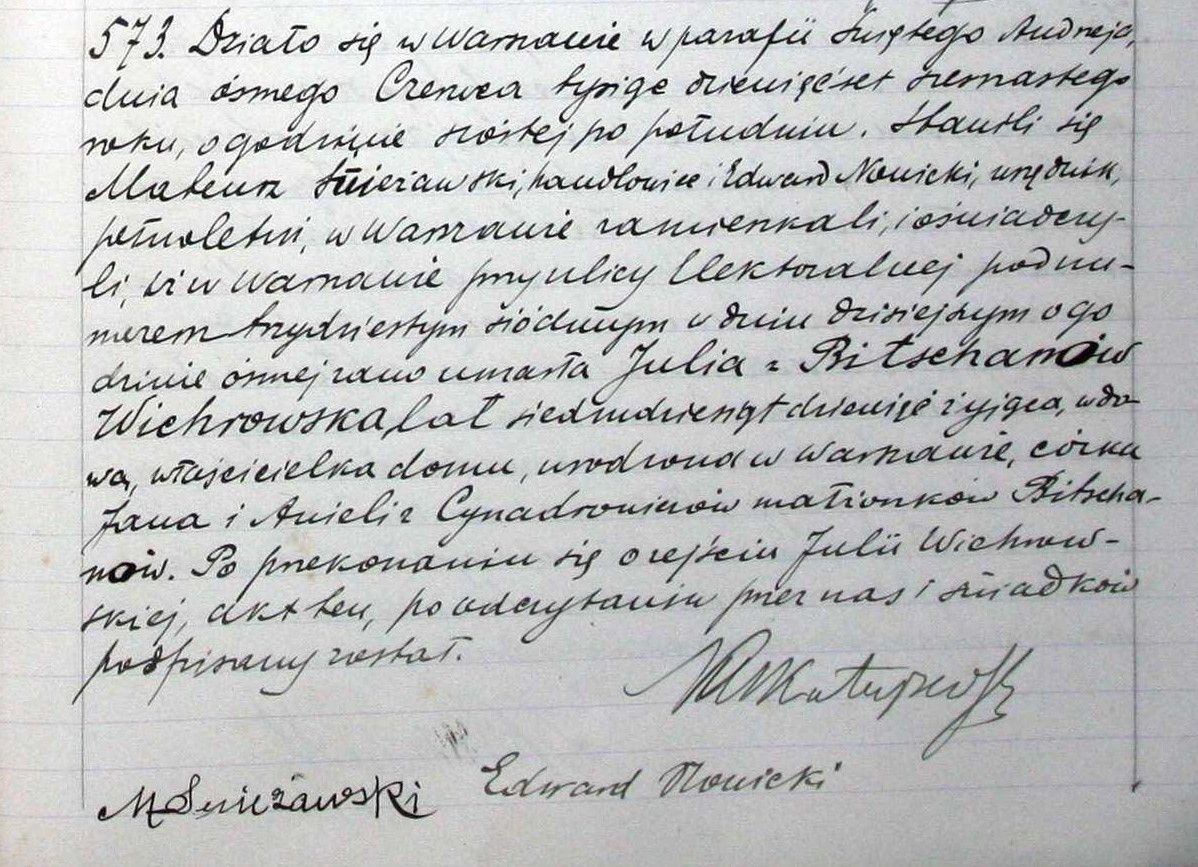 573. Działo się w Warszawie w parafii Świętego Andrzeja,
dnia ósmego Czerwca tysiąc dziewięćset siemnastego
roku, o godzinie szóstej po południu. Stawili się
Mateusz Śnieżawski, handlowiec i Edward Nowicki, urzędnik,
pełnoletni, w Warszawie zamieszkali, i oświadczy-
li, iż w Warszawie przy ulicy Elektoralnej pod nu-
merem trzydziestym siódmym w dniu dzisiejszym o go
dzinie ósmej rano umarła Julia z Bitschanów
Wichrowska, lat siedmdziesiąt dziewięć żyjąca, wdo-
wa, właścicielka domu, urodzona w Warszawie, córka
Jana i Anieli z Cynadrowiczów małżonków Bitscha-
nów. Po przekonaniu się o zejściu Julii Wichrow-
skiej, akt ten, po odczytaniu przez nas i świadków
podpisany został.
M Śnieżawski Edward Nowicki